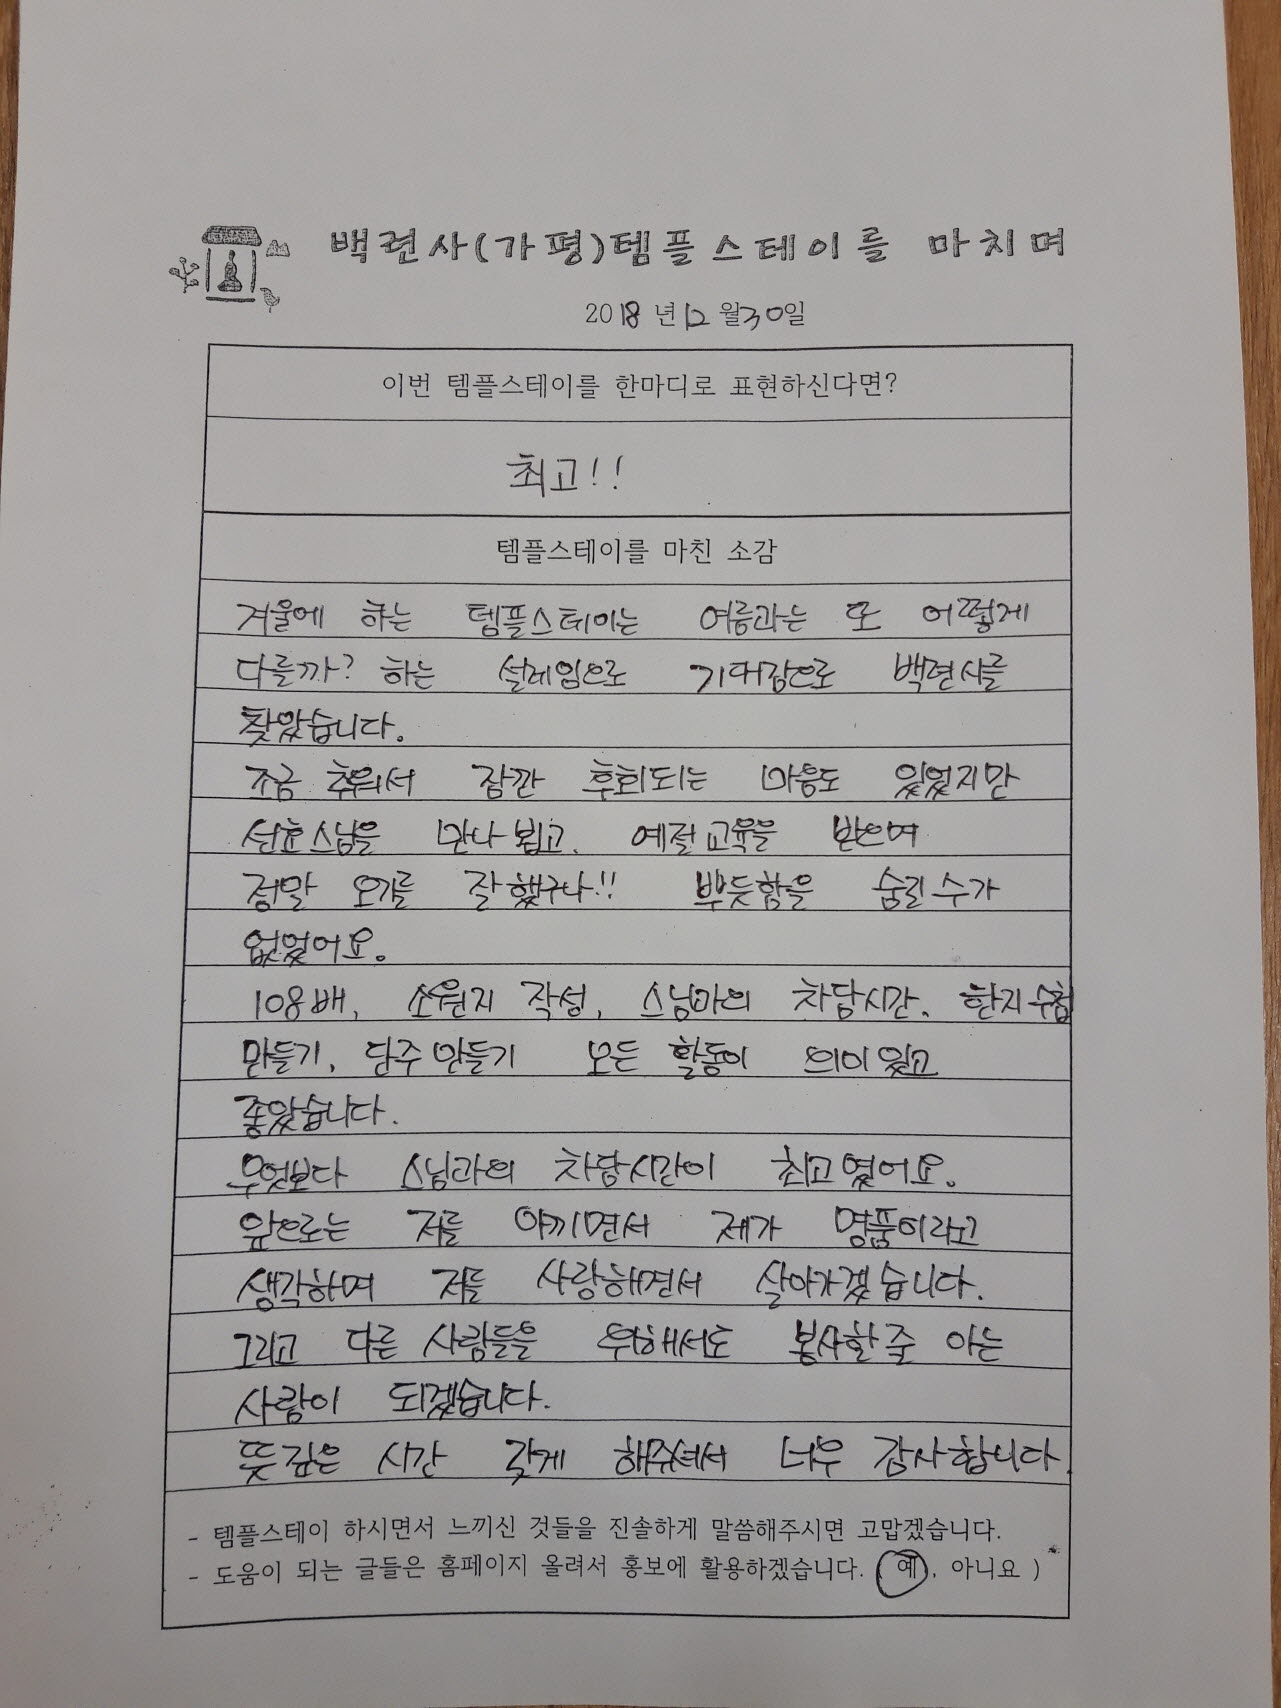 백련사(가평)템플스테이를 마치며
2018년 12월 30일
이번 템플스테이를 한마디로 표현하신다면?
최고!!
템플스테이를 마친 소감
겨울에 하는 템플스테이는 여름과는 또 어떻게
다를까? 하는 설레임으로 기대감으로 백련사를
찾았습니다.
조금 추워서 잠깐 후회되는 마음도 있었지만
선효스님을 만나뵙고, 예절교육을 받으며
정말 오기를 잘했구나!! 뿌듯함을 숨길수가
없었어요.
108배, 소원지 작성, 스님과의 차담시간, 한지수첩
만들기, 단주만들기 모든 활동이 의미있고
좋았습니다.
무엇보다 스님과의 차담시간이 최고였어요.
앞으로는 저를 아끼면서 제가 명품이라고
생각하며 저를 사랑하면서 살아가겠습니다.
그리고 다른 사람들을 위해서도 봉사할줄 아는
사람이 되겠습니다.
뜻깊은 시간 갖게 해주셔서 너무 감사합니다.
- 템플스테이 하시면서 느끼신 것들을 진솔하게 말씀해주시면 고맙겠습니다.
- 도움이 되는 글들은 홈페이지 올려서 홍보에 활용하겠습니다. (예, 아니요 )